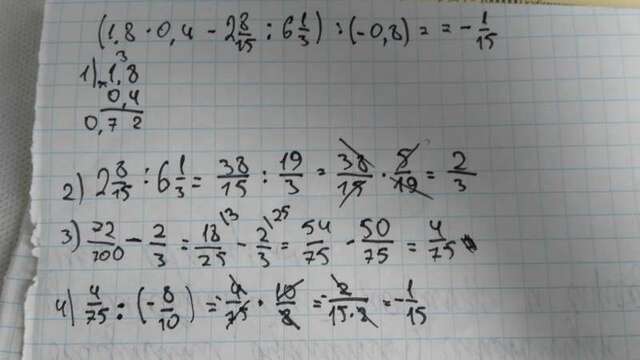 (1,8 · 0,4 - 2 8/15 : 6 1/3) : (-0,8) = = - 1/15
1) 3
× 1,8
0,4
0,7 2
2) 2 8/15 : 6 1/3 = 38/15 : 19/3 = 38/15 · 5/19 = 2/3
3) 72/100 - 2/3 = 18/25 \3 - 2/3 \25 = 54/75 - 50/75 = 4/75
4) 4/75 : (- 8/10) = - 4/75 · 10/8 = - 2/15·2 = - 1/15